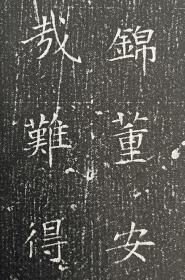 錦董安
哉難得